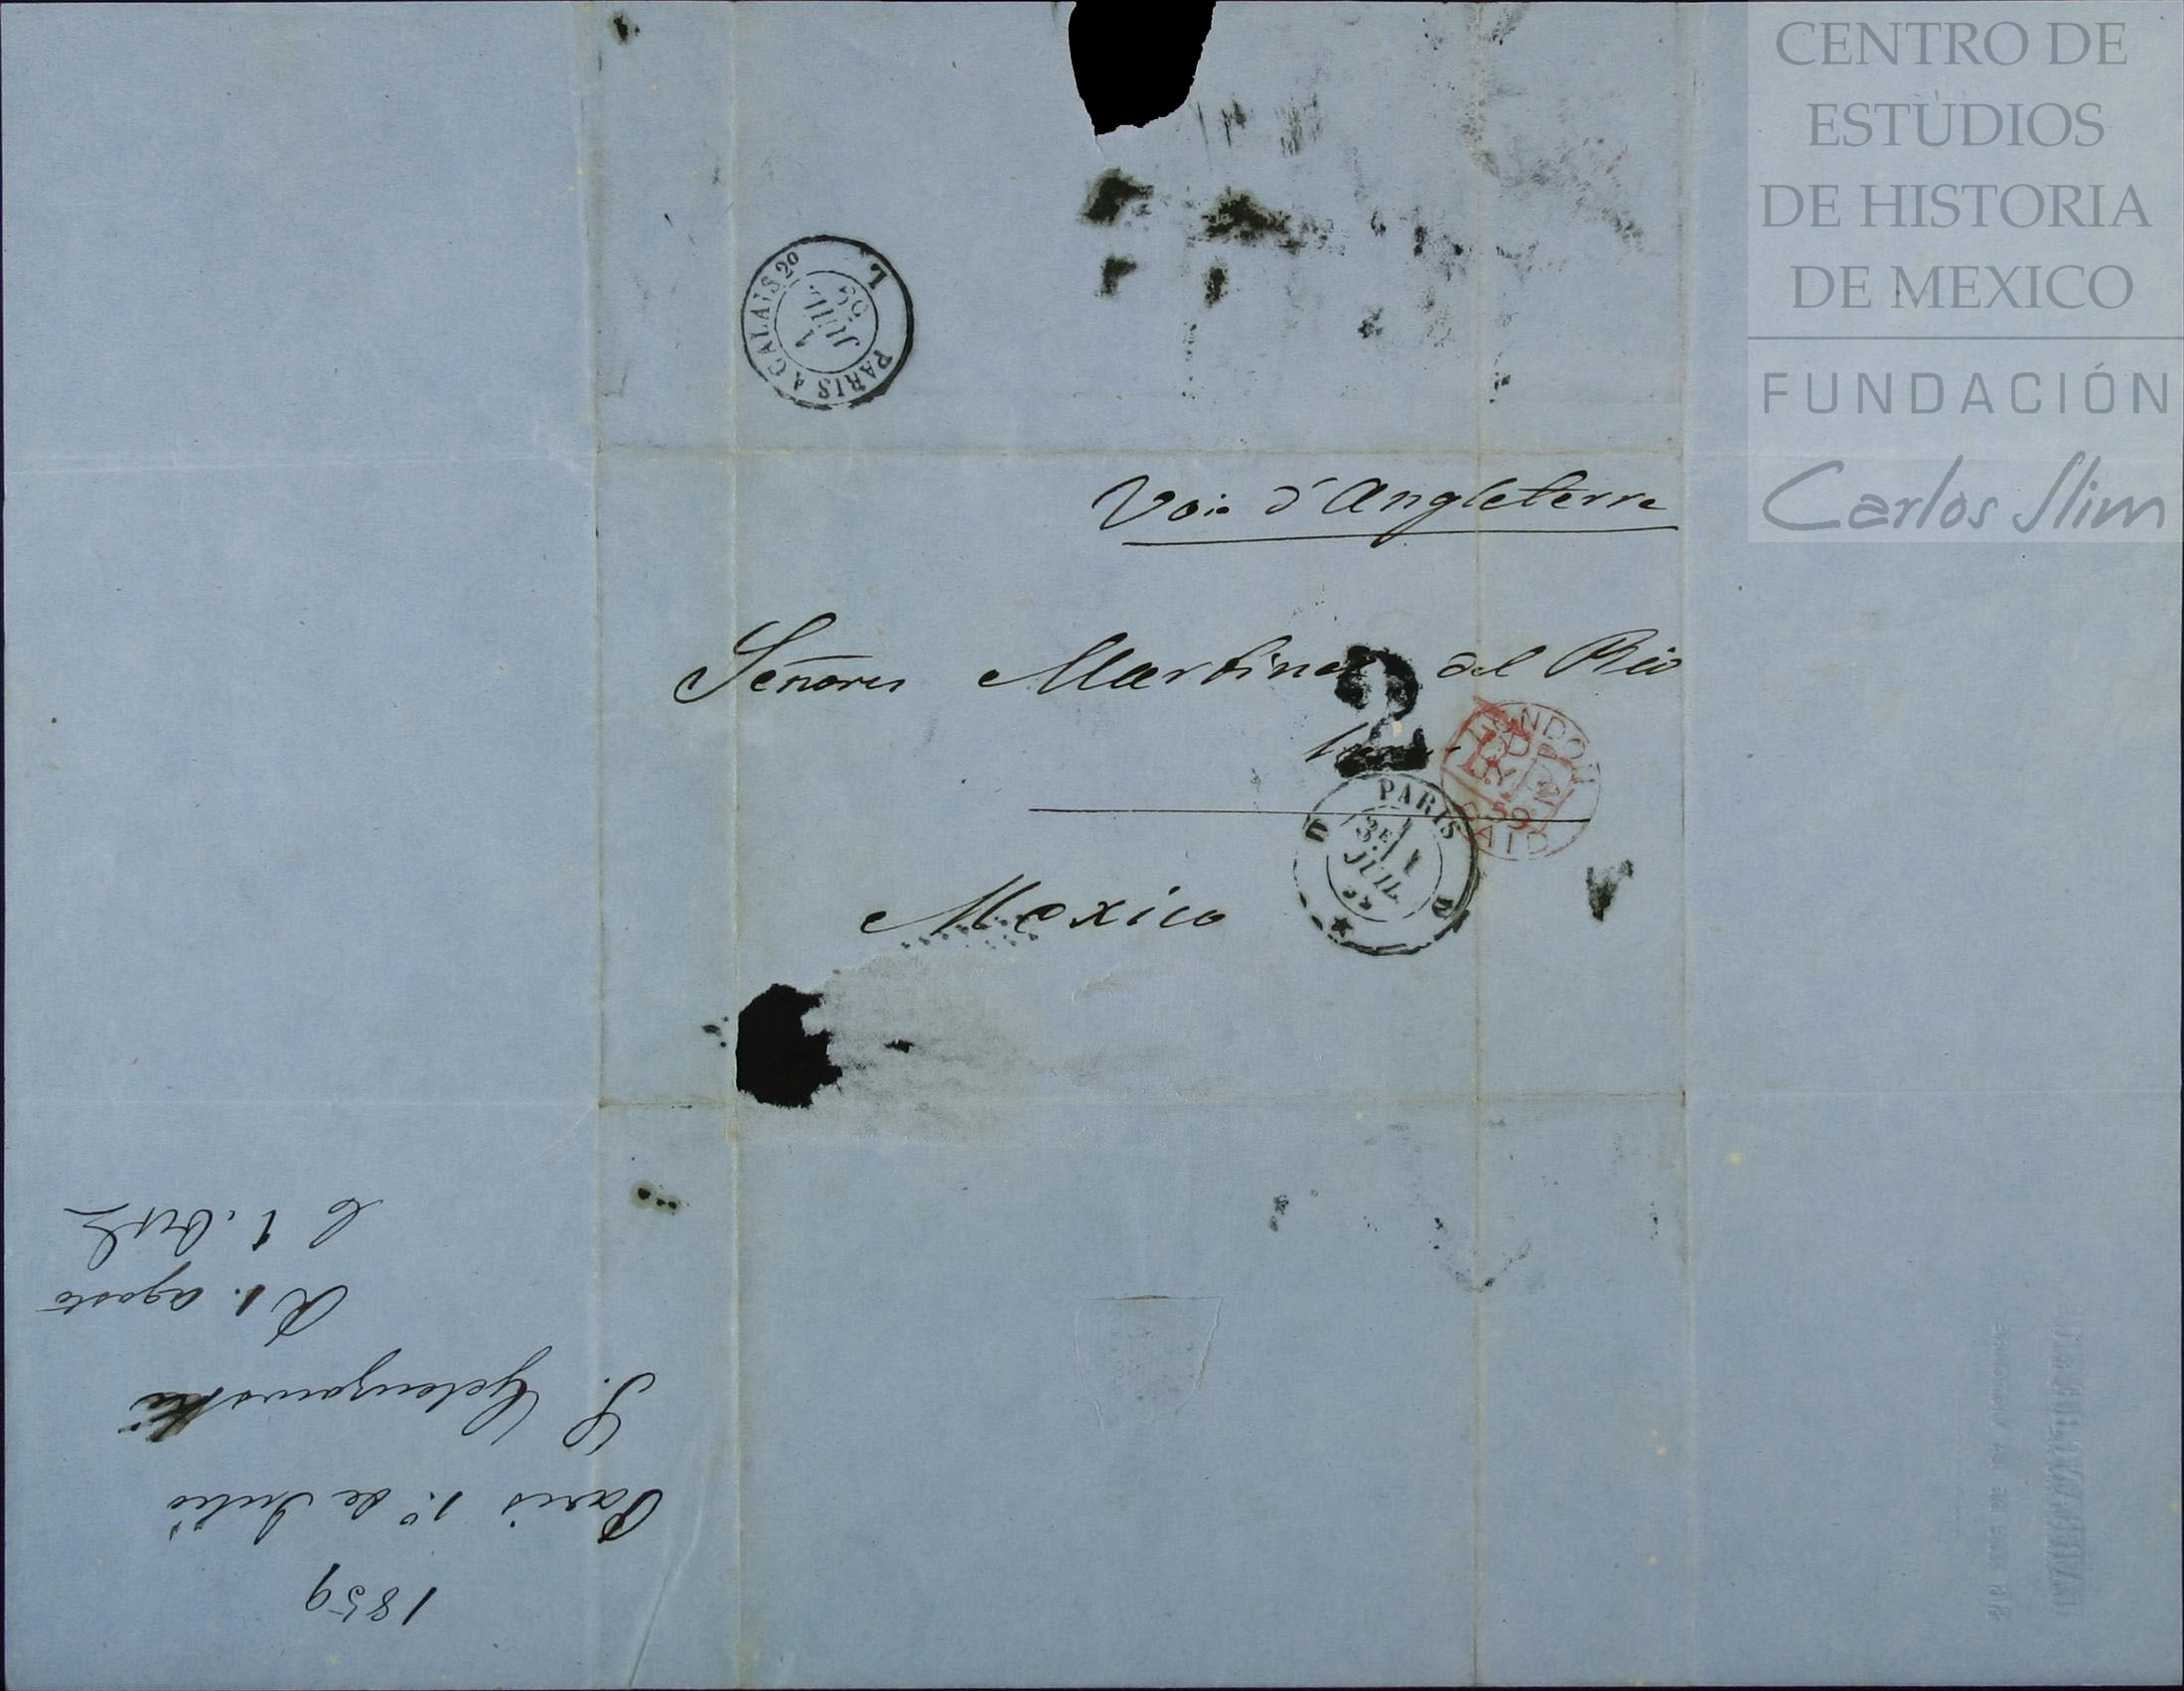 CENTRO DE
ESTUDIOS
DE HISTORIA
DE MEXICO
FUNDACIÓN
Carlos Slim
PARIS A CALAIS 2º
1
JUIL
59
L
Voie d'Angleterre
Señores Martinez del Rio
2
LONDON
JY 2
59
PAID
PARIS
3E 1
JUIL
D D
Mexico
1859
Paris 1º de Julio
R 1. agosto